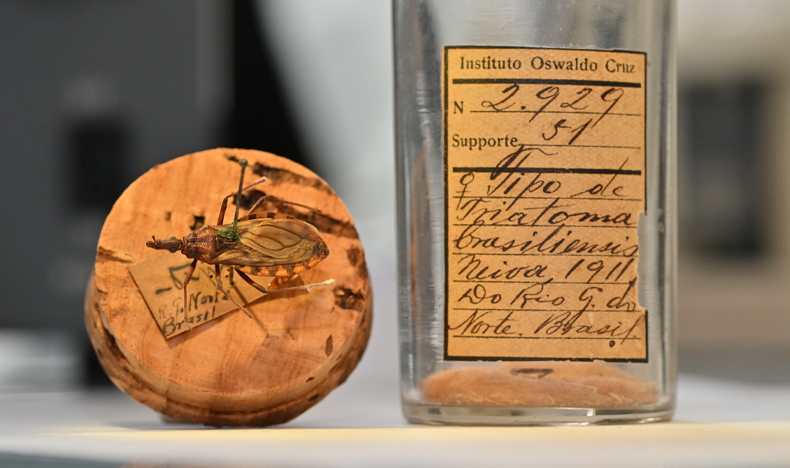 R. G. Norte
Brasil
Instituto Oswaldo Cruz
N 2.929
Supporte 51
♀ Tipo de
Triatoma
brasiliensis
Neiva 1911
Do Rio G. do
Norte. Brasil.